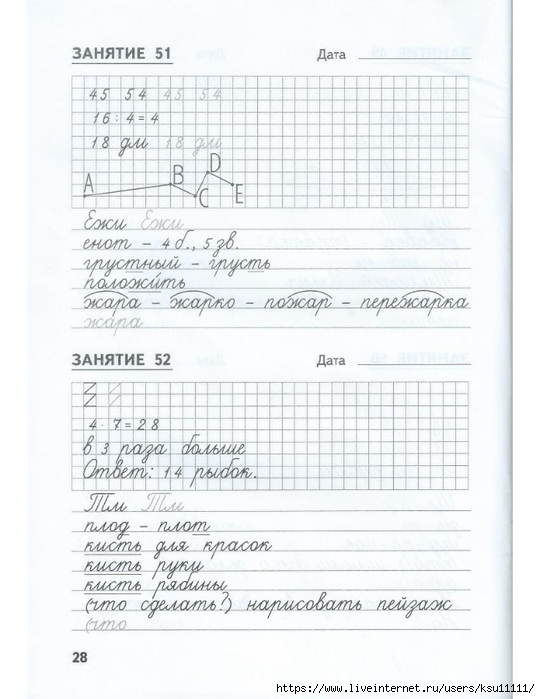 ЗАНЯТИЕ 51 Дата
45 54 45 54
16 : 4 = 4
18 дм 18 дм
A B C D E
Ежи Ежи
енот – 4 б., 5 зв.
грустный – грусть
положить
жара – жарко – пожар – пережарка
жара
ЗАНЯТИЕ 52 Дата
4 · 7 = 28
в 3 раза больше
Ответ: 14 рыбок.
Тм Тм
плод – плот
кисть для красок
кисть руки
кисть рябины
(что сделать?) нарисовать пейзаж
(что
28
https://www.liveinternet.ru/users/ksu11111/